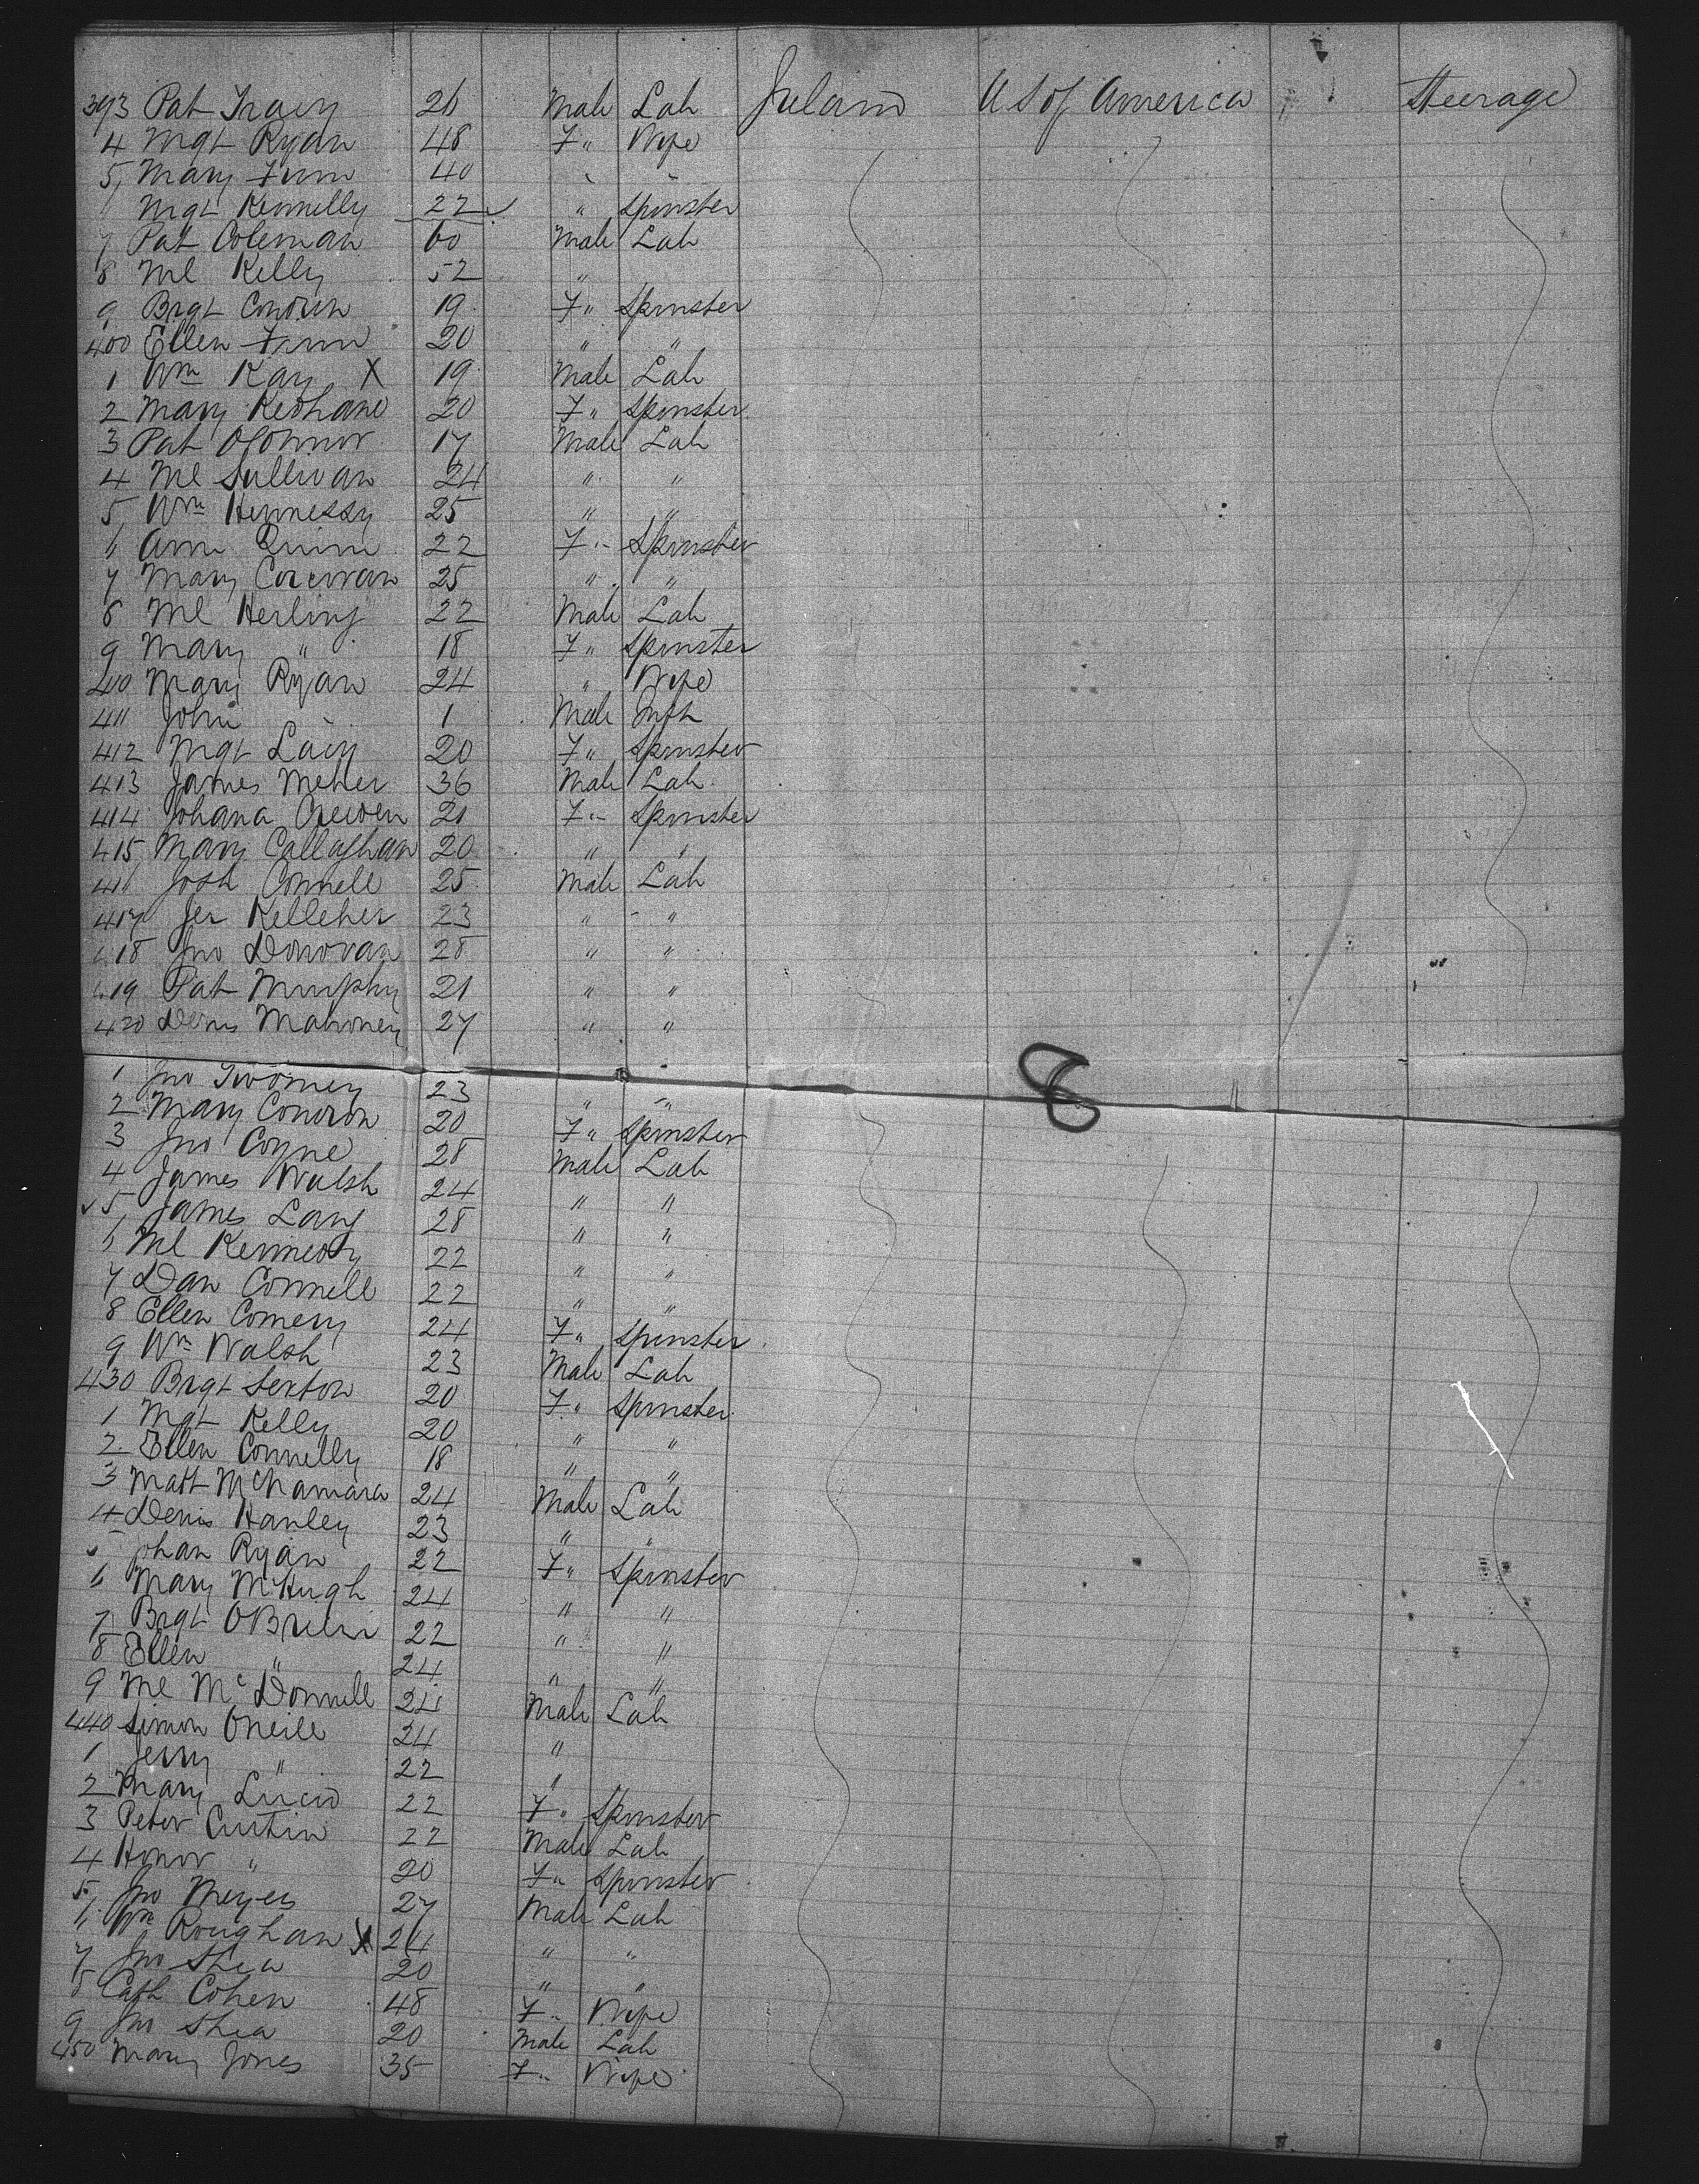 393 Pat Tracy 26 Male Lab Ireland U S of America Steerage
4 Mgt Ryan 48 F " Wife
5 Mary Finn 40 " "
Mgt Kennelly 22 " Spinster
7 Pat Coleman 60 Male Lab
8 Ml Kelly 52 "
9 Brgt Condren 19 F " Spinster
400 Ellen Finn 20 " "
1 Wm Kay X 19 Male Lab
2 Mary Keohane 20 F " Spinster
3 Pat OConnor 17 Male Lab
4 Ml Sullivan 24 " "
5 Wm Hennessy 25 " "
6 Ann Quinn 22 F " Spinster
7 Mary Corcoran 25 " "
8 Ml Herling 22 Male Lab
9 Mary " 18 F " Spinster
410 Mary Ryan 24 " Wife
411 John " 1 Male Inft
412 Mgt Lacy 20 F " Spinster
413 James Meher 36 Male Lab
414 Johana 21 F " Spinster
415 Mary Callaghan 20 " "
416 Josh Connell 25 Male Lab
417 Jer Kelleher 23 " "
418 Jno Donovan 28 " "
419 Pat Murphy 21 " "
420 Denis Mahoney 27 " "
8
1 Jno Twomey 23 " "
2 Mary Condron 20 F " Spinster
3 Jno Coyne 28 Male Lab
4 James Walsh 24 " "
5 James Lang 28 " "
6 Ml Kennedy 22 " "
7 Dan Connell 22 " "
8 Ellen Comery 24 F " Spinster
9 Wm Walsh 23 Male Lab
430 Brgt Sexton 20 F " Spinster
1 Mgt Kelly 20 " "
2 Ellen Connelly 18 " "
3 Matt McNamara 24 Male Lab
4 Denis Hanley 23 " "
5 Johan Ryan 22 F " Spinster
6 Mary McHugh 24 " "
7 Brgt OBrien 22 " "
8 Ellen " 24 " "
9 Ml McDonnell 24 Male Lab
440 Simon ONeill 24 "
1 Jerry " 22 "
2 Mary Lucid 22 F " Spinster
3 Peter Curtin 22 Male Lab
4 Honor " 20 F " Spinster
5 Jno Meyers 27 Male Lab
6 Wm Roughan X 24 " "
7 Jno Shea 20 " "
8 Cath Cohen 48 F " Wife
9 Jno Shea 20 Male Lab
450 Mary Jones 35 F " Wife